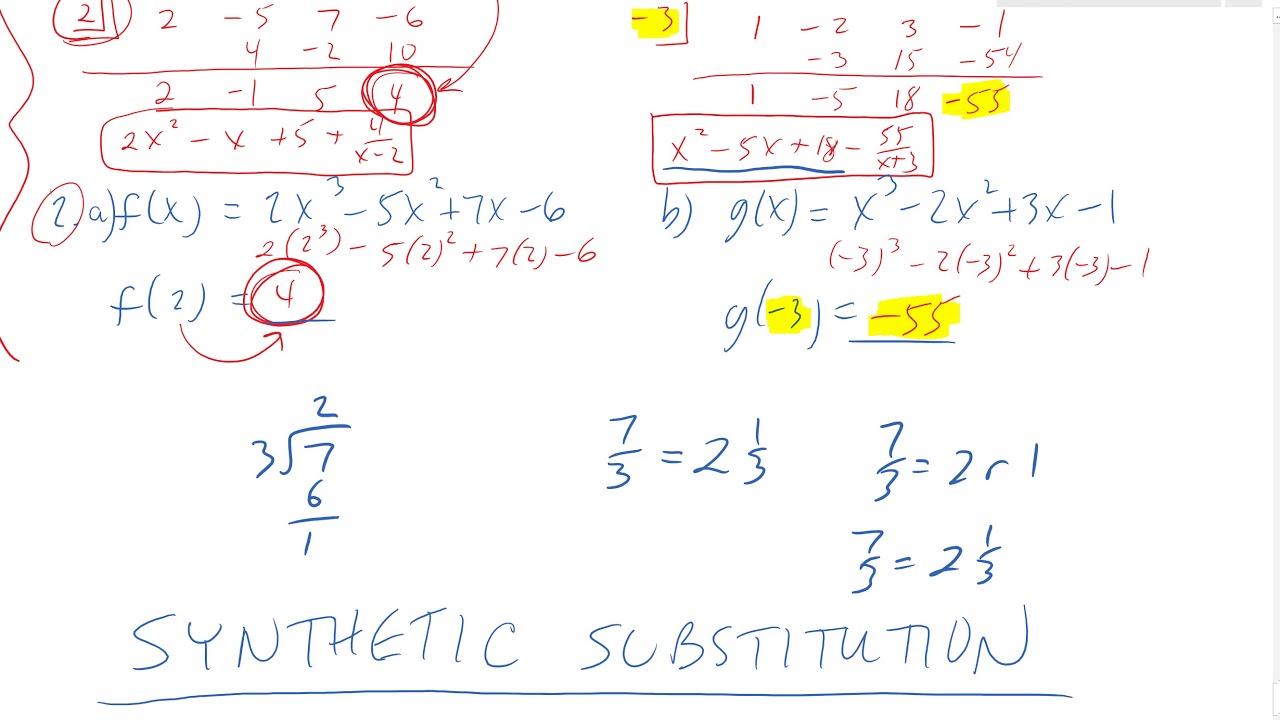 2 2 -5 7 -6
4 -2 10
2 -1 5 4
2x² - x + 5 + 4/(x-2)
-3 1 -2 3 -1
-3 15 -54
1 -5 18 -55
x² - 5x + 18 - 55/(x+3)
2. a) f(x) = 2x³ - 5x² + 7x - 6
2(2³) - 5(2)² + 7(2) - 6
f(2) = 4
b) g(x) = x³ - 2x² + 3x - 1
(-3)³ - 2(-3)² + 3(-3) - 1
g(-3) = -55
2
3√7
6
1
7/3 = 2 1/3
7/3 = 2 r 1
7/3 = 2 1/3
SYNTHETIC SUBSTITUTION